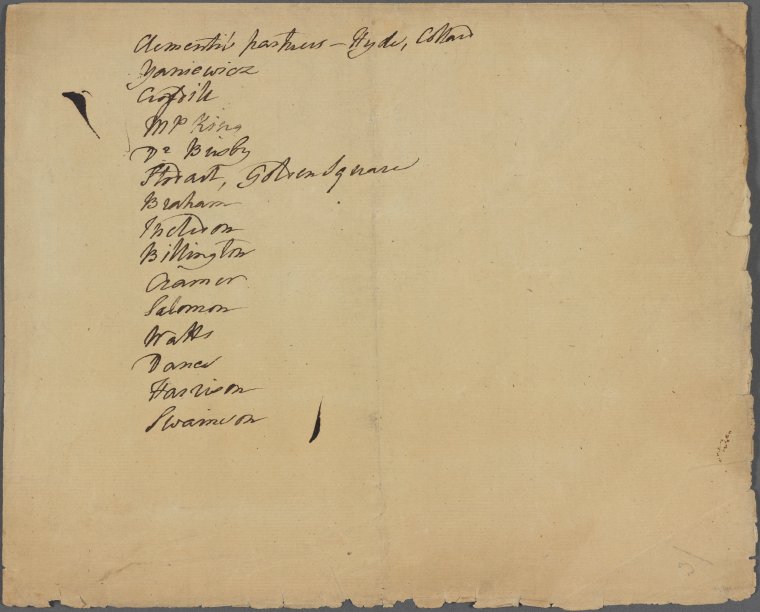 Clementi's partners – Hyde, Collard
Yaniewicz
Crosdill
Mr King
Dr Busby
Stodart, Golden Square
Braham
Incledon
Billington
Cramer
Salomon
Watts
Dance
Harrison
Swainson
3/